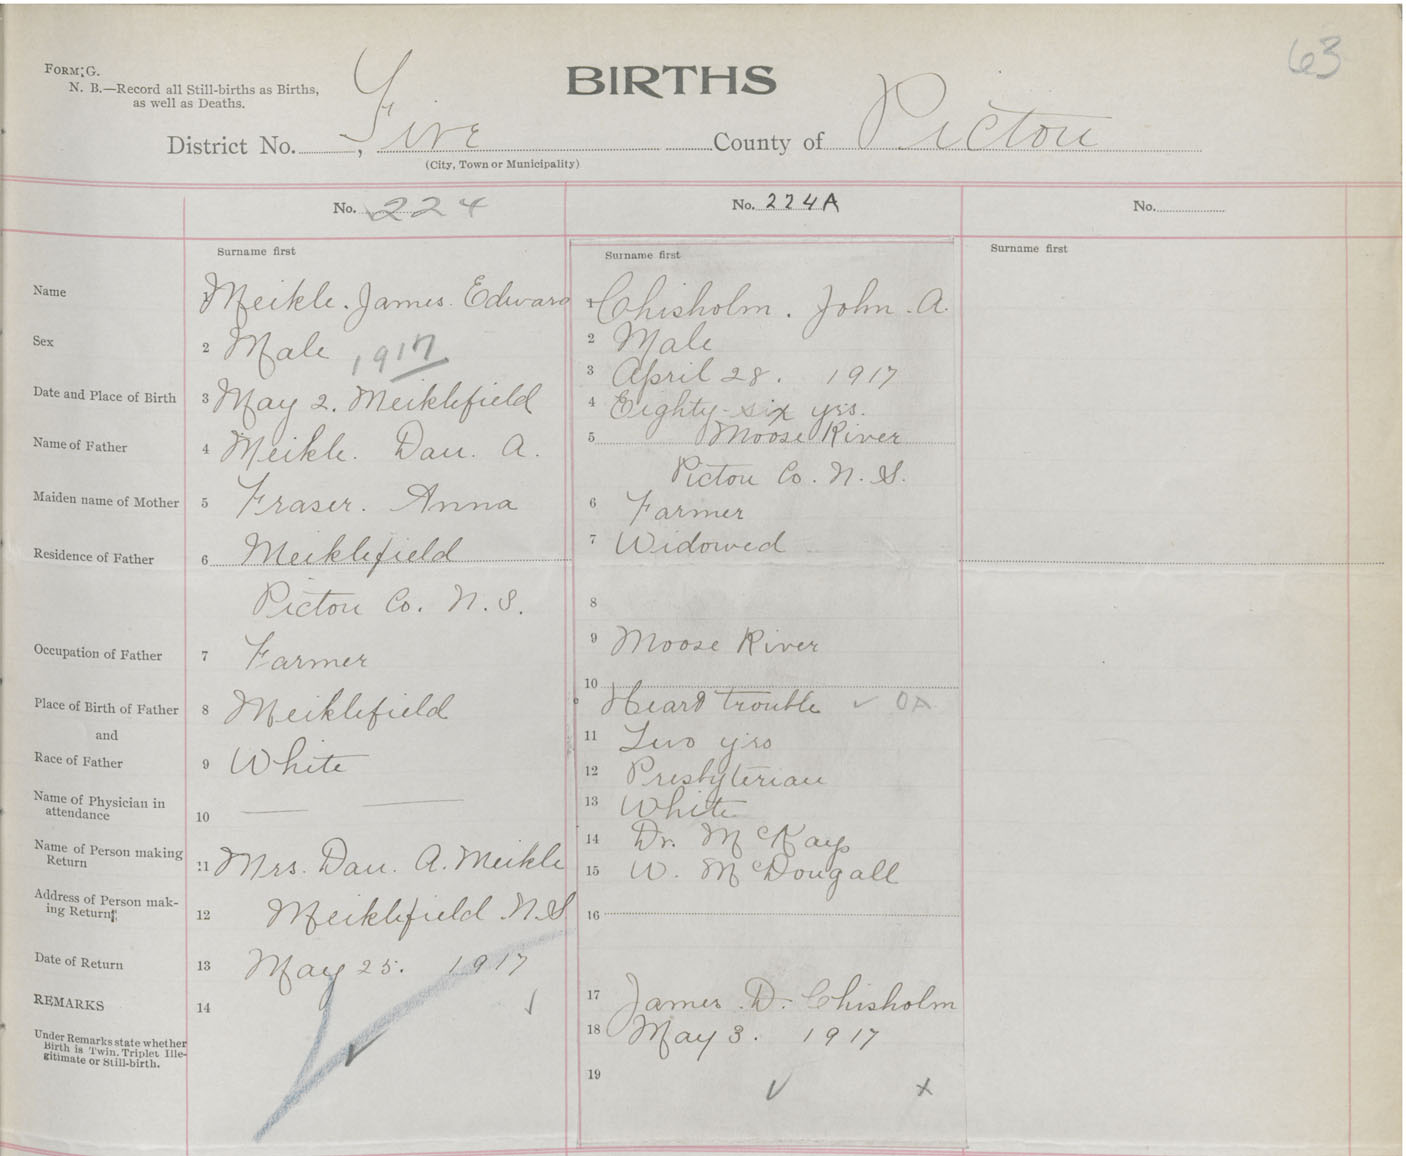 63
FORM G.
N. B.—Record all Still-births as Births,
as well as Deaths.
BIRTHS
District No. , Five County of Pictou
(City, Town or Municipality)
No. 224
No. 224A
No.
Surname first
Surname first
Surname first
Name
1 Meikle. James. Edward
Sex
2 Male 1917
Date and Place of Birth
3 May 2. Meiklefield
Name of Father
4 Meikle. Dan. A.
Maiden name of Mother
5 Fraser. Anna
Residence of Father
6 Meiklefield
Pictou Co. N. S.
Occupation of Father
7 Farmer
Place of Birth of Father
8 Meiklefield
and
Race of Father
9 White
Name of Physician in
attendance
10 — —
Name of Person making
Return
11 Mrs. Dan. A. Meikle
Address of Person mak-
ing Return
12 Meiklefield N.S
Date of Return
13 May 25. 1917
REMARKS
14 ✓
Under Remarks state whether
Birth is Twin, Triplet Ille-
gitimate or Still-birth.
1 Chisholm. John. A.
2 Male
3 April 28. 1917
4 Eighty-six yrs.
5 Moose River
Pictou Co. N. S.
6 Farmer
7 Widowed
8
9 Moose River
10
Heart trouble ✓ OA
11 Two yrs
12 Presbyterian
13 White
14 Dr. McKay
15 W. McDougall
16
17 James. D. Chisholm
18 May 3. 1917
19
✓ x